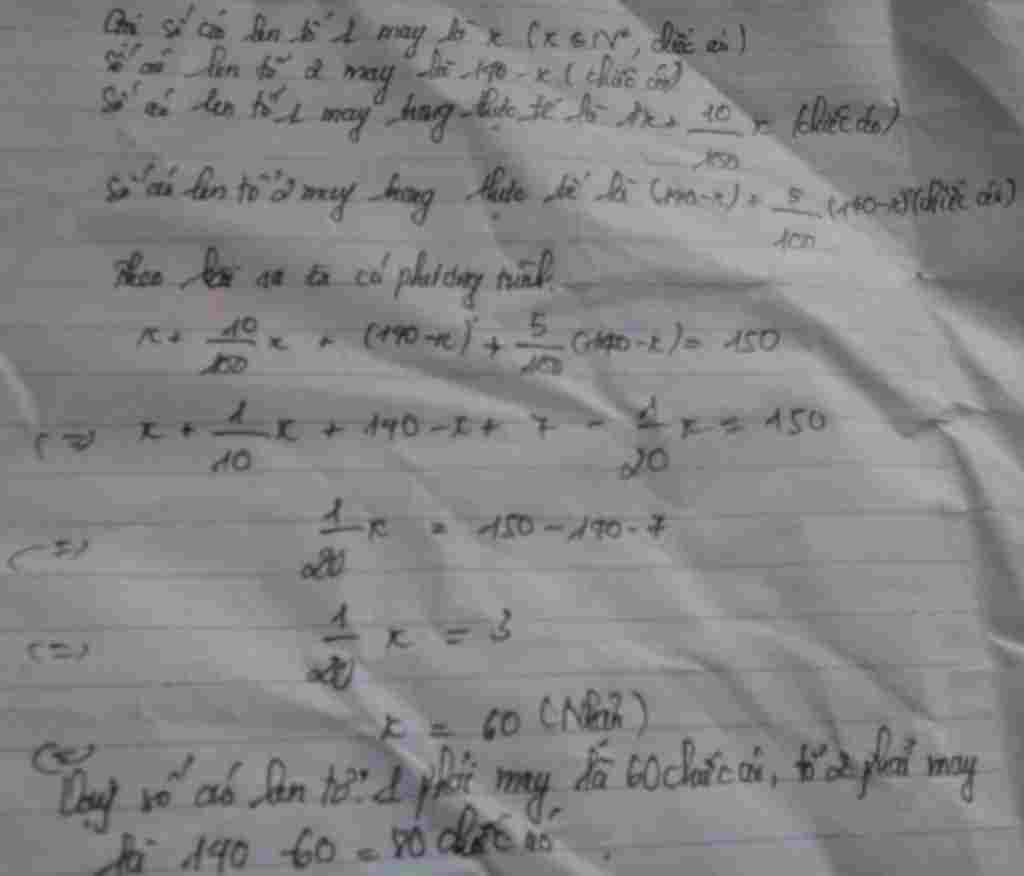 Gọi số áo len tổ 1 may là x (x ∈ N*, chiếc áo)
Số áo len tổ 2 may là 140 - x (chiếc áo)
Số áo len tổ 1 may trong thực tế là x + 10/100 x (chiếc áo)
Số áo len tổ 2 may trong thực tế là (140-x) + 5/100 (140-x) (chiếc áo)
Theo bài ra ta có phương trình:
x + 10/100 x + (140-x) + 5/100 (140-x) = 150
<=> x + 1/10 x + 140 - x + 7 - 1/20 x = 150
<=> 1/20 x = 150 - 140 - 7
<=> 1/20 x = 3
<=> x = 60 (Nhận)
Vậy số áo len tổ 1 phải may là 60 chiếc áo, tổ 2 phải may
là 140 - 60 = 80 chiếc áo.